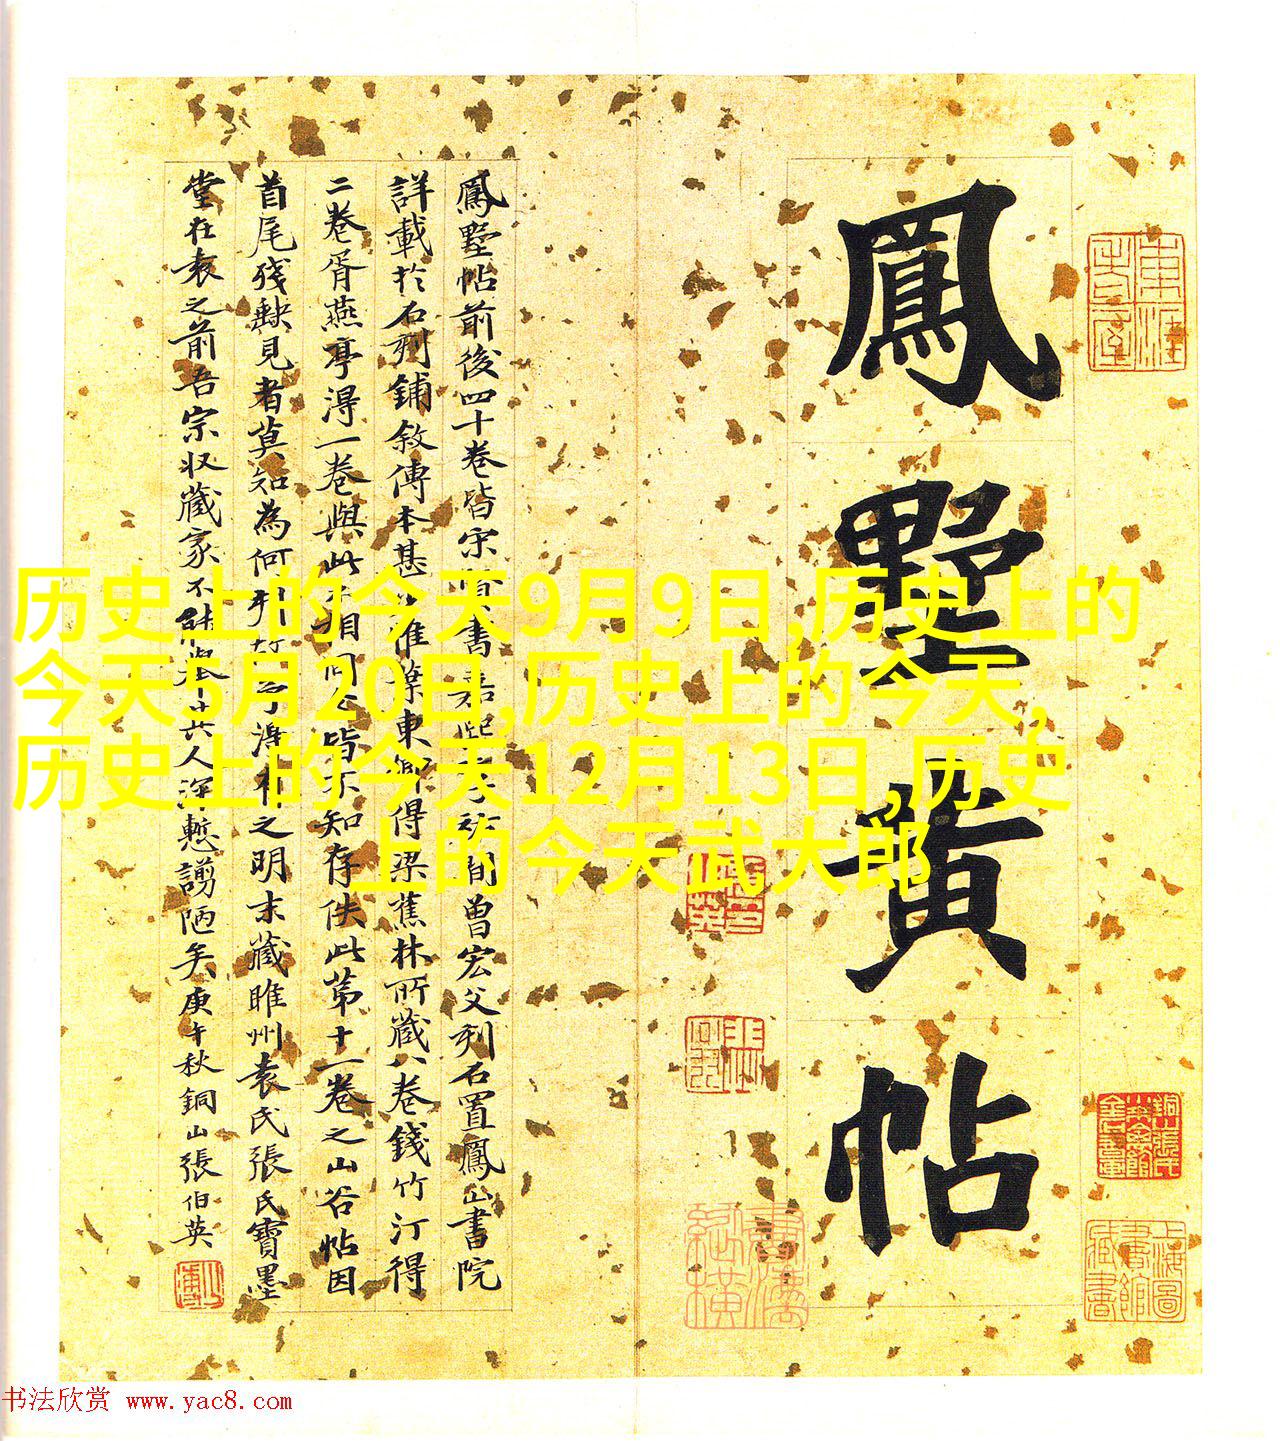 鳳墅黄帖
鳳墅帖前後四十卷皆宋賢書嘉熙淳祐間曾宏父刋石置鳳山書院
詳載於石刻鋪敘傳本甚 葉東卿得梁蕉林所藏八卷錢竹汀得
二卷胥燕亭得一卷與此不相同 皆不知存佚此第十一卷之山谷帖因
首尾殘缺見者莫知為何刋 得 之明末藏睢州袁氏張氏寶墨
堂在袁之前吾宗収藏家不 人深慙謭陋矣庚午秋銅山張伯英
历史上的今天9月9日,历史上的
今天5月20日,历史上的今天,
历史上的今天12月13日,历史
上的今天武大郎
上海圖書館藏書
书法欣赏 www.yac8.com